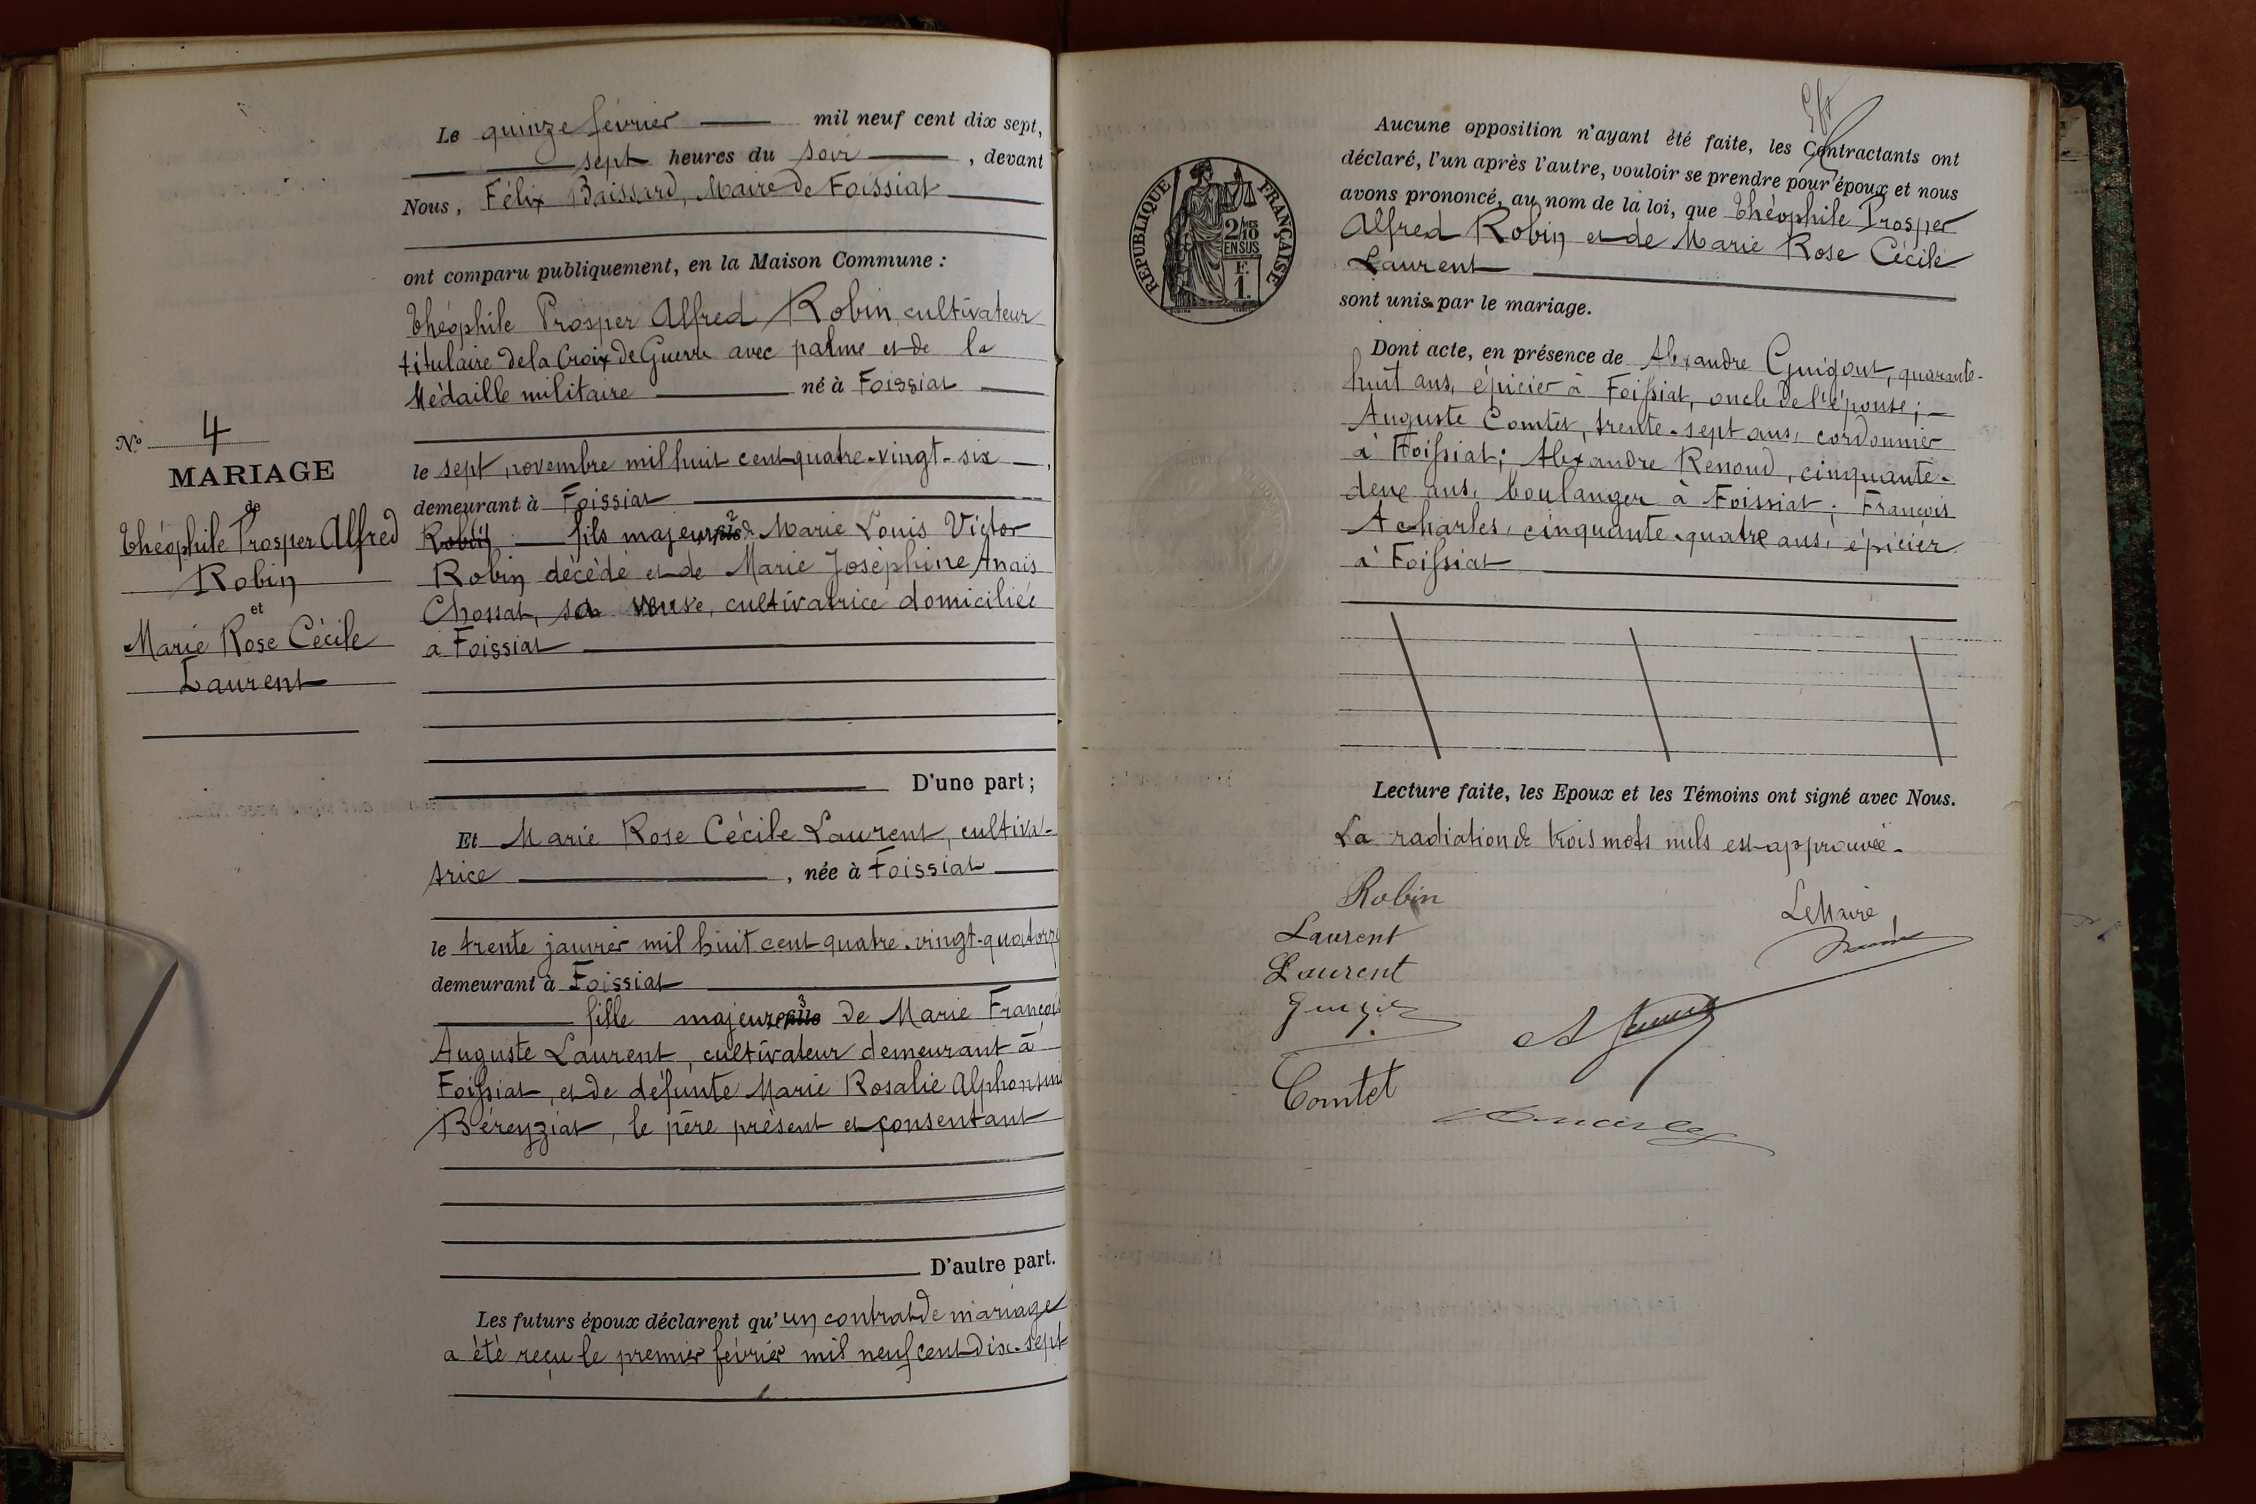 Le quinze février mil neuf cent dix sept,
sept heures du soir, devant
Nous, Félix Baissard, Maire de Foissiat
ont comparu publiquement, en la Maison Commune :
Théophile Prosper Alfred Robin, cultivateur
titulaire de la Croix de Guerre avec palme et de la
Médaille militaire né à Foissiat
le sept novembre mil huit cent quatre-vingt-six,
demeurant à Foissiat
Robin fils majeur fils de Marie Louis Victor
Robin décédé et de Marie Joséphine Anaïs
Chossat, sa veuve, cultivatrice domiciliée
à Foissiat
D'une part ;
Nº 4
MARIAGE
de
Théophile Prosper Alfred
Robin
et
Marie Rose Cécile
Laurent
Et Marie Rose Cécile Laurent, cultiva-
trice, née à Foissiat
le trente janvier mil huit cent quatre-vingt-quatorze
demeurant à Foissiat
fille majeure fille de Marie François
Auguste Laurent, cultivateur demeurant à
Foissiat, et de défunte Marie Rosalie Alphonsine
Béreyziat, le père présent et consentant
D'autre part.
Les futurs époux déclarent qu'un contrat de mariage
a été reçu le premier février mil neuf cent dix-sept
RÉPUBLIQUE FRANÇAISE
2/10 MES
EN SUS
F.
1.
Aucune opposition n'ayant été faite, les Contractants ont
déclaré, l'un après l'autre, vouloir se prendre pour époux et nous
avons prononcé, au nom de la loi, que Théophile Prosper
Alfred Robin et de Marie Rose Cécile
Laurent
sont unis par le mariage.
Dont acte, en présence de Alexandre Guigout, quarante-
huit ans, épicier à Foissiat, oncle de l'épouse ;
Auguste Comtet, trente-sept ans, cordonnier
à Foissiat ; Alexandre Renoud, cinquante-
deux ans, boulanger à Foissiat ; François
Acharles, cinquante-quatre ans, épicier
à Foissiat
Lecture faite, les Epoux et les Témoins ont signé avec Nous.
La radiation de trois mots nuls est approuvée.
Robin
Le Maire
Laurent
Laurent
Comtet